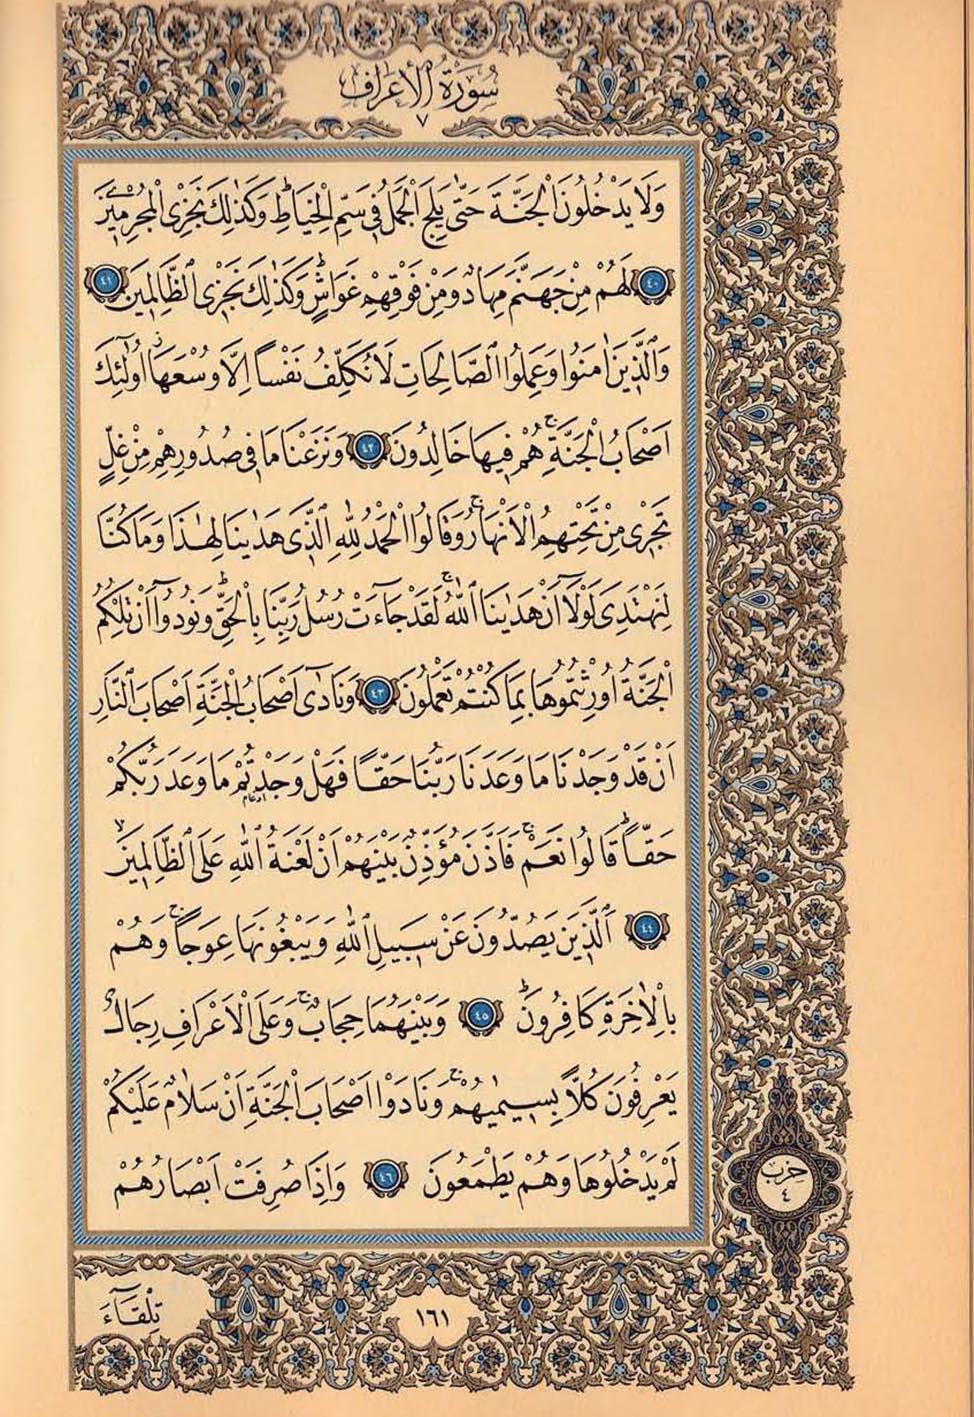 سُورَةُ الْأَعْرَافِ
٧
وَلَا يَدْخُلُونَ الْجَنَّةَ حَتّٰى يَلِجَ الْجَمَلُ فٖى سَمِّ الْخِيَاطِؕ وَكَذٰلِكَ نَجْزِى الْمُجْرِمٖينَ
﴿٤٠﴾ لَهُمْ مِنْ جَهَنَّمَ مِهَادٌ وَمِنْ فَوْقِهِمْ غَوَاشٍؕ وَكَذٰلِكَ نَجْزِى الظَّالِمٖينَ ﴿٤١﴾
وَالَّذٖينَ اٰمَنُوا وَعَمِلُوا الصَّالِحَاتِ لَا نُكَلِّفُ نَفْسًا اِلَّا وُسْعَهَاۘ اُولٰٓئِكَ
اَصْحَابُ الْجَنَّةِۚ هُمْ فٖيهَا خَالِدُونَ ﴿٤٢﴾ وَنَزَعْنَا مَا فٖى صُدُورِهِمْ مِنْ غِلٍّ
تَجْرٖى مِنْ تَحْتِهِمُ الْاَنْهَارُۚ وَقَالُوا الْحَمْدُ لِلّٰهِ الَّذٖى هَدٰينَا لِهٰذَا وَمَا كُنَّا
لِنَهْتَدِىَ لَوْلَٓا اَنْ هَدٰينَا اللّٰهُۚ لَقَدْ جَٓاءَتْ رُسُلُ رَبِّنَا بِالْحَقِّؕ وَنُودُٓوا اَنْ تِلْكُمُ
الْجَنَّةُ اُورِثْتُمُوهَا بِمَا كُنْتُمْ تَعْمَلُونَ ﴿٤٣﴾ وَنَادٰٓى اَصْحَابُ الْجَنَّةِ اَصْحَابَ النَّارِ
اَنْ قَدْ وَجَدْنَا مَا وَعَدَنَا رَبُّنَا حَقًّا فَهَلْ وَجَدْتُمْ مَا وَعَدَ رَبُّكُمْ
حَقًّاؕ قَالُوا نَعَمْۚ فَاَذَّنَ مُؤَذِّنٌ بَيْنَهُمْ اَنْ لَعْنَةُ اللّٰهِ عَلَى الظَّالِمٖينَۙ
﴿٤٤﴾ اَلَّذٖينَ يَصُدُّونَ عَنْ سَبٖيلِ اللّٰهِ وَيَبْغُونَهَا عِوَجًاۚ وَهُمْ
بِالْاٰخِرَةِ كَافِرُونَؕ ﴿٤٥﴾ وَبَيْنَهُمَا حِجَابٌۚ وَعَلَى الْاَعْرَافِ رِجَالٌ
يَعْرِفُونَ كُلًّا بِسٖيمٰيهُمْۚ وَنَادَوْا اَصْحَابَ الْجَنَّةِ اَنْ سَلَامٌ عَلَيْكُمْ
لَمْ يَدْخُلُوهَا وَهُمْ يَطْمَعُونَ ﴿٤٦﴾ وَاِذَا صُرِفَتْ اَبْصَارُهُمْ
حزب
٤
١٦١
تِلْقَٓاءَ